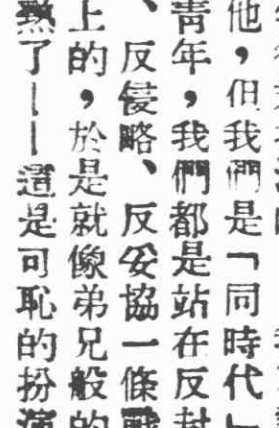 他，但我們是「同時代」
青年，我們都是站在反封
、反侵略、反妥協一條戰
上的，於是就像弟兄般的
熟了——這是可恥的扮演